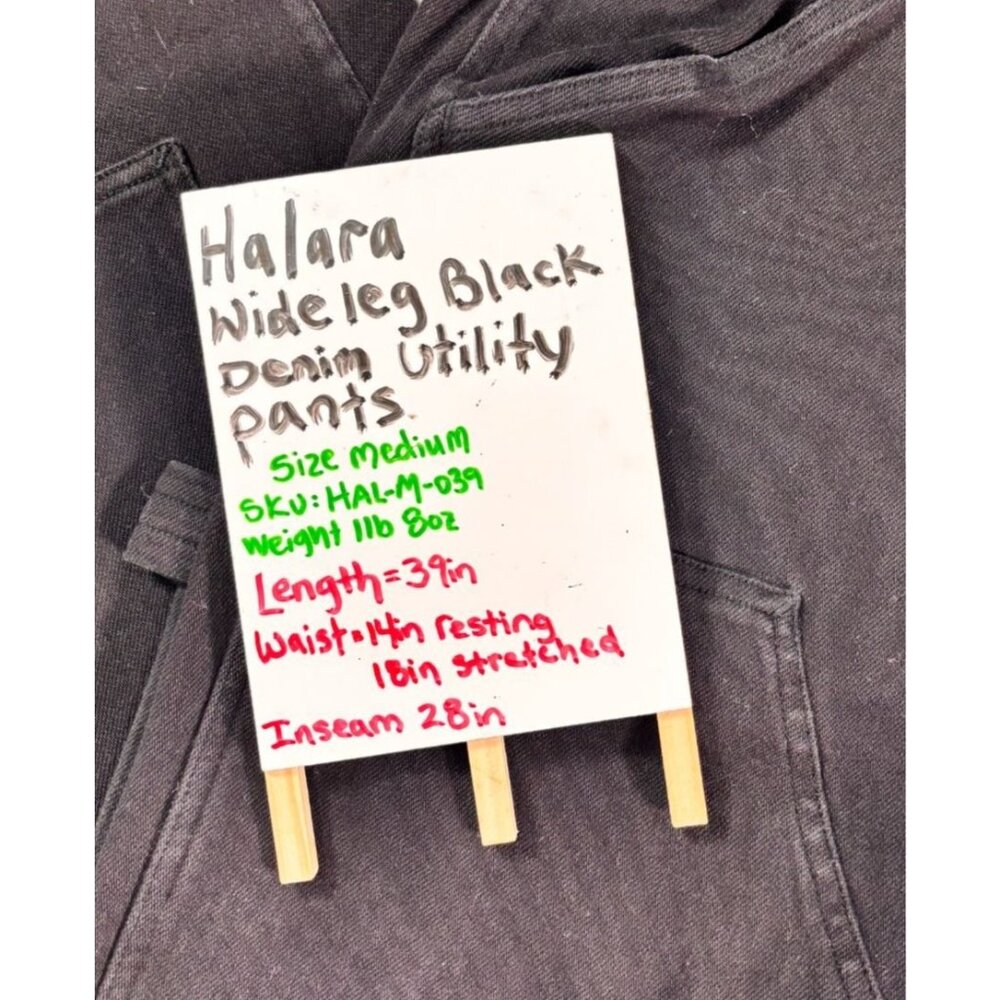 Halara
Wide leg Black
Denim Utility
pants.
Size Medium
SKU: HAL-M-039
Weight 1lb 8oz
Length = 39in
Waist = 14in resting
18in stretched
Inseam 28in